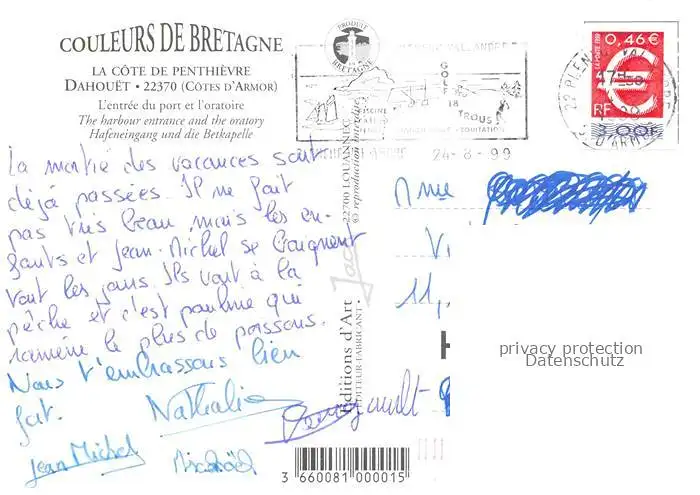 COULEURS DE BRETAGNE
LA CÔTE DE PENTHIÈVRE
DAHOUËT • 22370 (CÔTES D'ARMOR)
L'entrée du port et l'oratoire
The harbour entrance and the oratory
Hafeneingang und die Betkapelle
PRODUIT
BRETAGNE
GOLF
18
TROUS
EQUITATION
24-8-99
0,46€
LA POSTE 1999
RF
3,00F
22 PLENEUF VAL ANDRE
D'ARMOR
La moitié des vacances sont
déjà passées. Il ne fait
pas très beau, mais les en-
fants et Jean-Michel se baignent
tout les jours. Ils vont à la
pêche et c'est pauline qui
ramène le plus de poissons.
Nous t'embrassons bien
fort.
Nathalie
Jean Michel
22700 LOUANNEC
© reproduction interdite
Editions d'Art
EDITEUR-FABRICANT
Jac
Mme
Vi
11,
H
privacy protection
Datenschutz
3 660081 000015